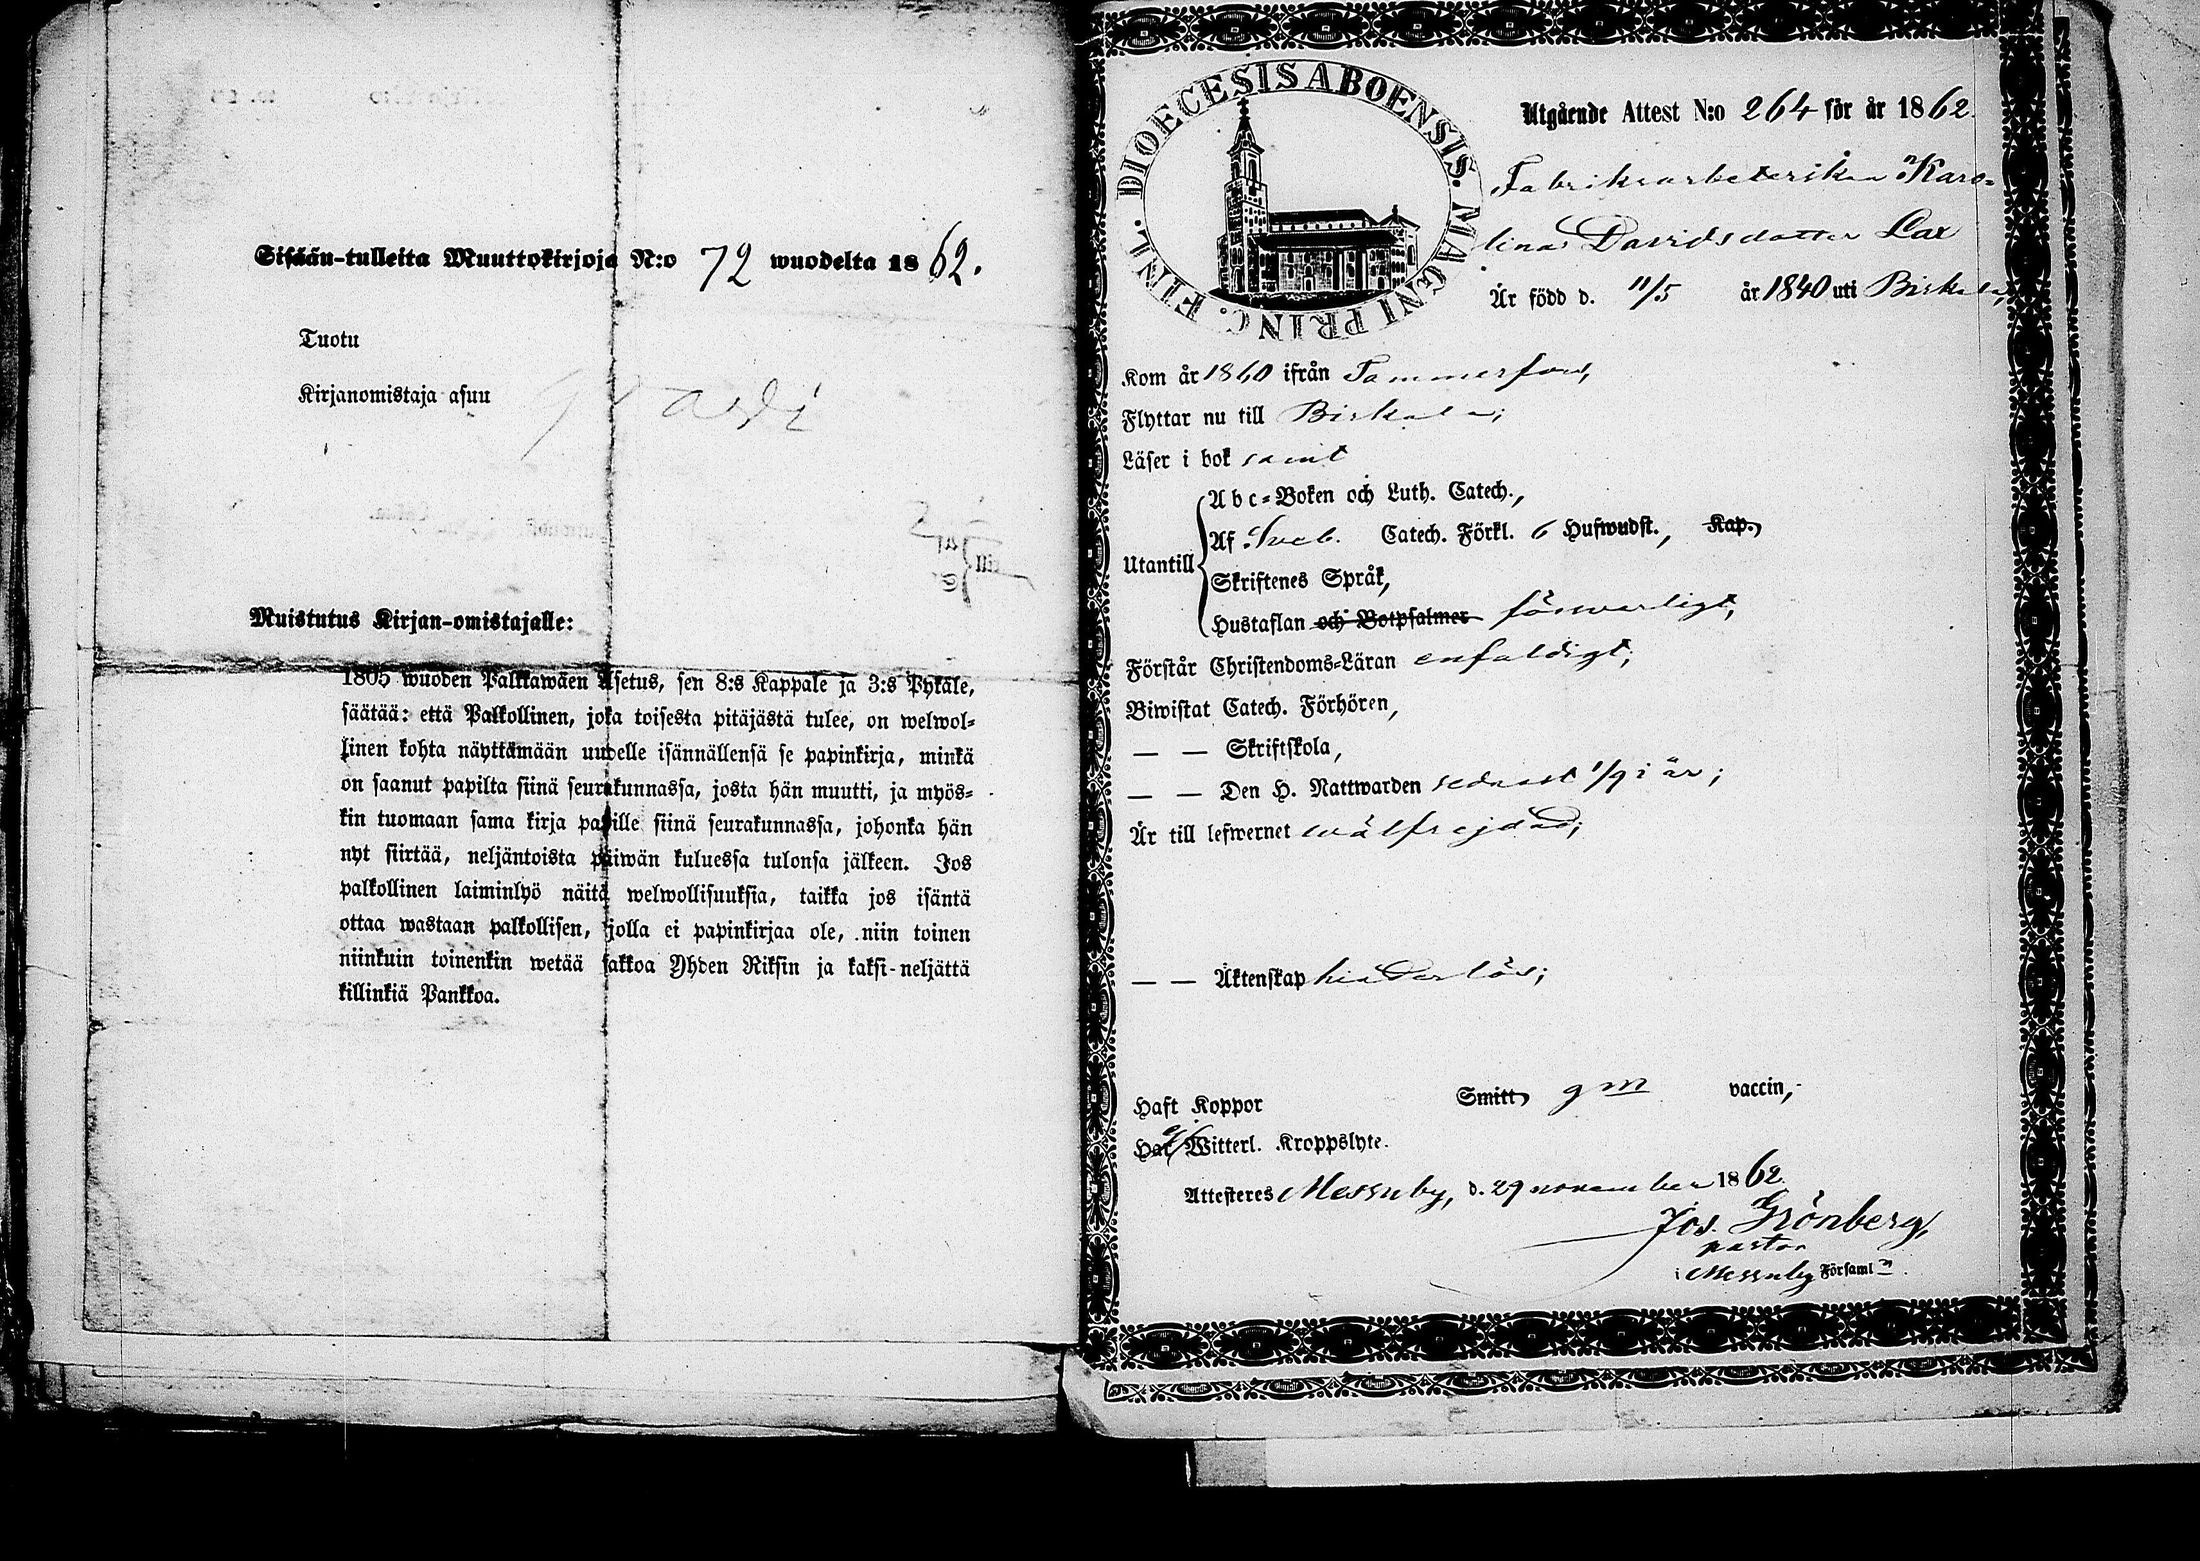 Sisään-tulleita Muuttokirjoja N:o 72 wuodelta 1862.
Tuotu
Kirjanomistaja asuu
Muistutus Kirjan-omistajalle:
1805 wuoden Palkkawäen Asetus, sen 8:s Kappale ja 3:s Pykäle,
säätää: että Palkollinen, joka toisesta pitäjästä tulee, on welwol=
linen kohta näyttämään uudelle isännällensä se papinkirja, minkä
on saanut papilta siinä seurakunnassa, josta hän muutti, ja myös=
kin tuomaan sama kirja papille siinä seurakunnassa, johonka hän
nyt siirtää, neljäntoista päiwän kuluessa tulonsa jälkeen. Jos
palkollinen laiminlyö näitä welwollisuuksia, taikka jos isäntä
ottaa wastaan palkollisen, jolla ei papinkirjaa ole, niin toinen
niinkuin toinenkin wetää sakkoa Yhden Riksin ja kaksi-neljättä
killinkiä Pankkoa.
DIOECESIS ABOENSIS. MAGNI PRINC. FINL.
Utgående Attest N:o 264 för år 1862.
Fabriksarbeterskan Karo=
lina Davidsdotter Lax
Är född d. 11/5 år 1840 uti Birkala,
Kom år 1860 ifrån Tammerfors,
Flyttar nu till Birkala;
Läser i bok samt
Utantill
Abc=Boken och Luth. Catech.,
Af Sveb. Catech. Förkl. 6 Hufwudst., Kap.,
Skriftenes Språk,
Hustaflan och Botpsalmer försvarligt,
Förstår Christendoms=Läran enfaldigt;
Biwistat Catech. Förhören,
— — Skriftskola,
— — Den H. Nattwarden sednast 1/9 i år;
Är till lefwernet wälfrejdad;
— — Äktenskap hinderlös;
Haft Koppor Smitt, gm vaccin,
Har Witterl. Kroppslyte.
Attesteres Messuby, d. 29 november 1862.
Jos. Grönberg,
pastor
i Messuby Församl n